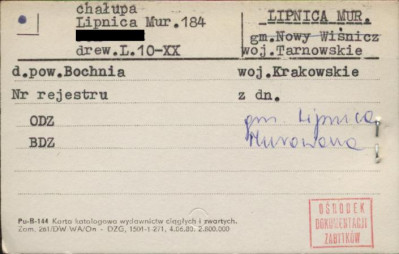 chałupa
Lipnica Mur.184
drew.L.10-XX
LIPNICA MUR.
gm.Nowy Wiśnicz
woj.Tarnowskie
d.pow.Bochnia
woj.Krakowskie
Nr rejestru
z dn.
ODZ
BDZ
gm. Lipnica
Murowana
Pu-B-144 Karta katalogowa wydawnictw ciągłych i zwartych.
Zam. 261/DW WA/On - DZG, 1501-1-2/1, 4.06.80. 2.600.000
OŚRODEK
DOKUMENTACJI
ZABYTKÓW